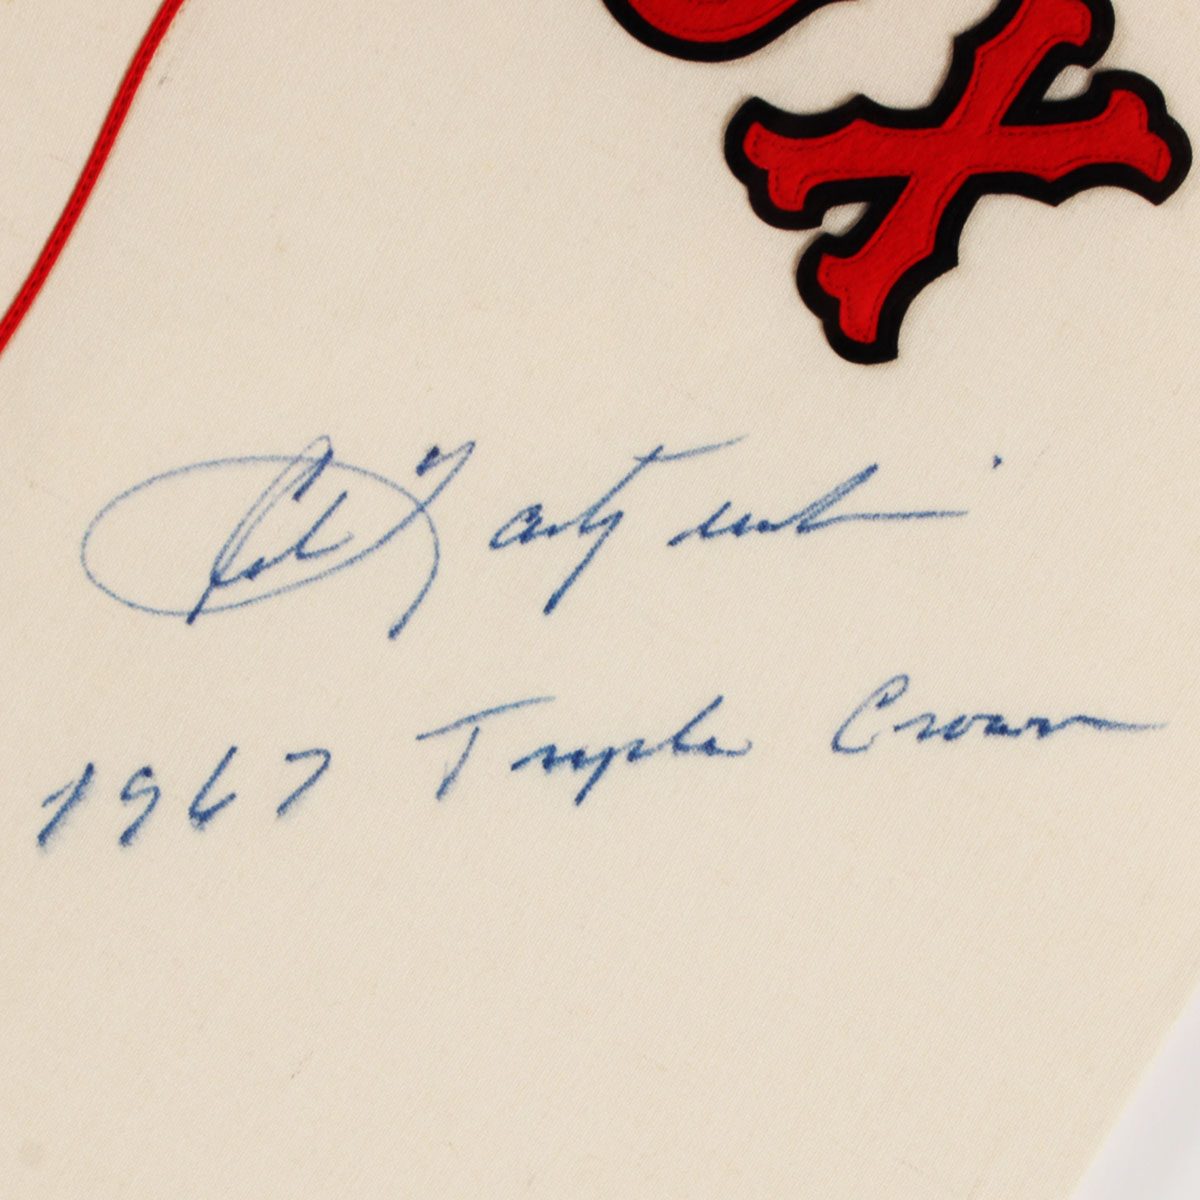 X
Carl Yastrzemski
1967 Triple Crown